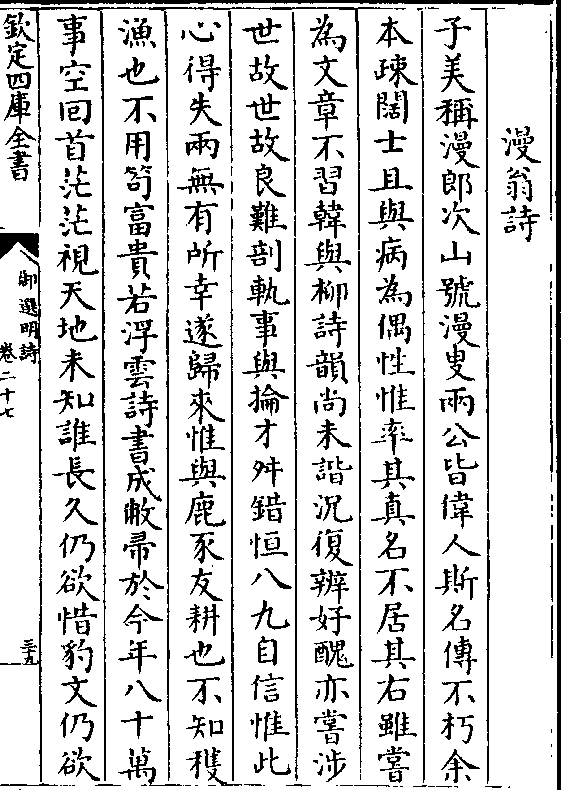 漫翁詩
子美稱漫郎次山號漫叟兩公皆偉人斯名傳不朽余
本疎闊士且與病為偶性惟率其真名不居其右雖嘗
為文章不習韓與柳詩韻尚未諧況復辨好醜亦嘗涉
世故世故良難剖執事與掄才舛錯恒八九自信惟此
心得失兩無有所幸遂歸來惟與鹿豕友耕也不知穫
漁也不用笱富貴若浮雲詩書成敝帚於今年八十萬
事空回首茫茫視天地未知誰長久仍欲惜豹文仍欲
欽定四庫全書
御選明詩
卷二十七
三十五